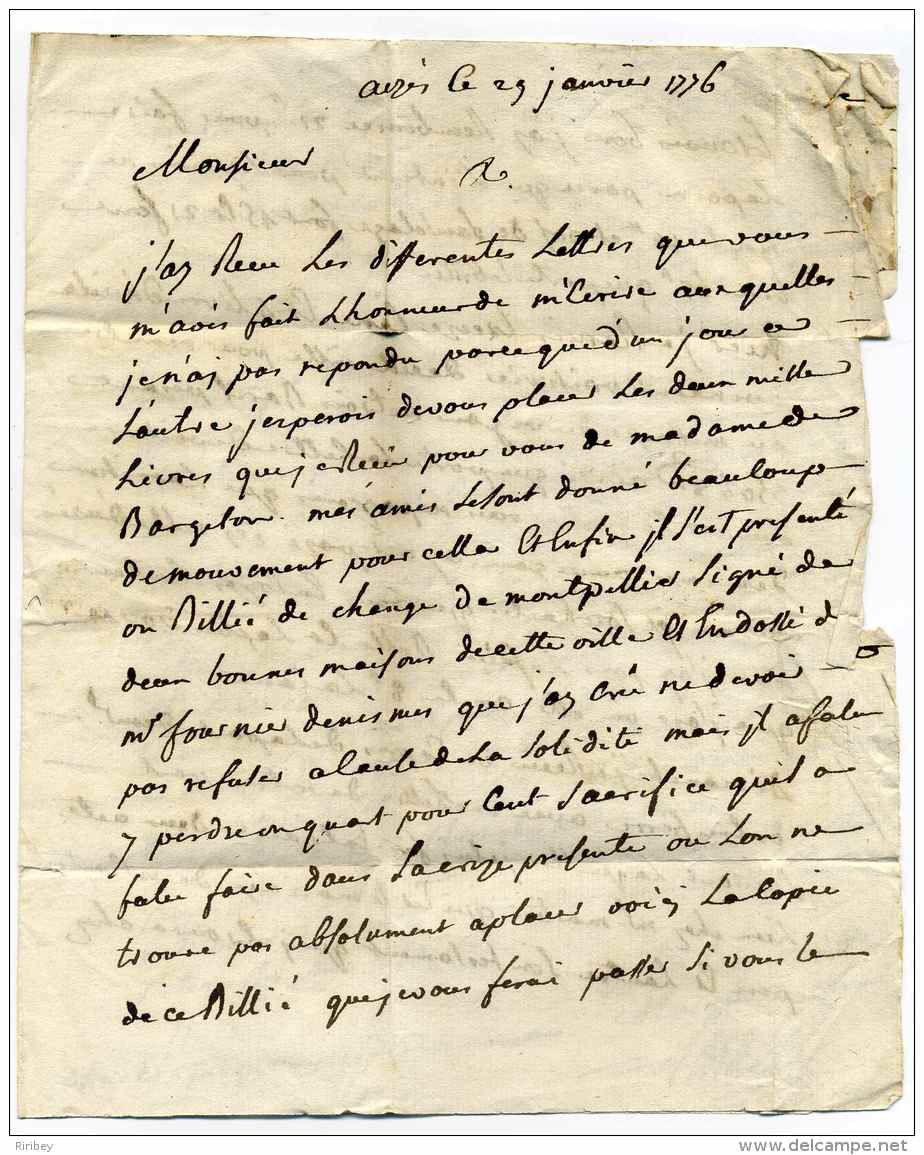 auzès le 29 janvier 1776
Monsieur
R.
j'ay Receu Les differentes Lettres que vous
m'avés fait Lhonneur de m'Ecrire auxquelles
je n'ay pas repondu parceque d'un jour a
Lautre jesperois de vous placer Les deux mille
Livres que je Receu pour vous de madame de
Bargeton. mes amis se sont donné beaucoup
de mouvement pour cella Et Enfin jl s'est presenté
un Billié de change de montpellier signé de
deux bonnes maisons de cette ville Et Endossé de
mr fournier de nismes que j'ay cru ne devoir
pas refuser a cause de La solidité mais jl a falu
y perdre un quart pour Cent sacrifice quil a
falu faire dans La crize presente ou Lon ne
trouve pas absolument a placer voicy La Copie
de ce Billié que je vous ferai passer si vous le
Riribey
www.delcampe.net